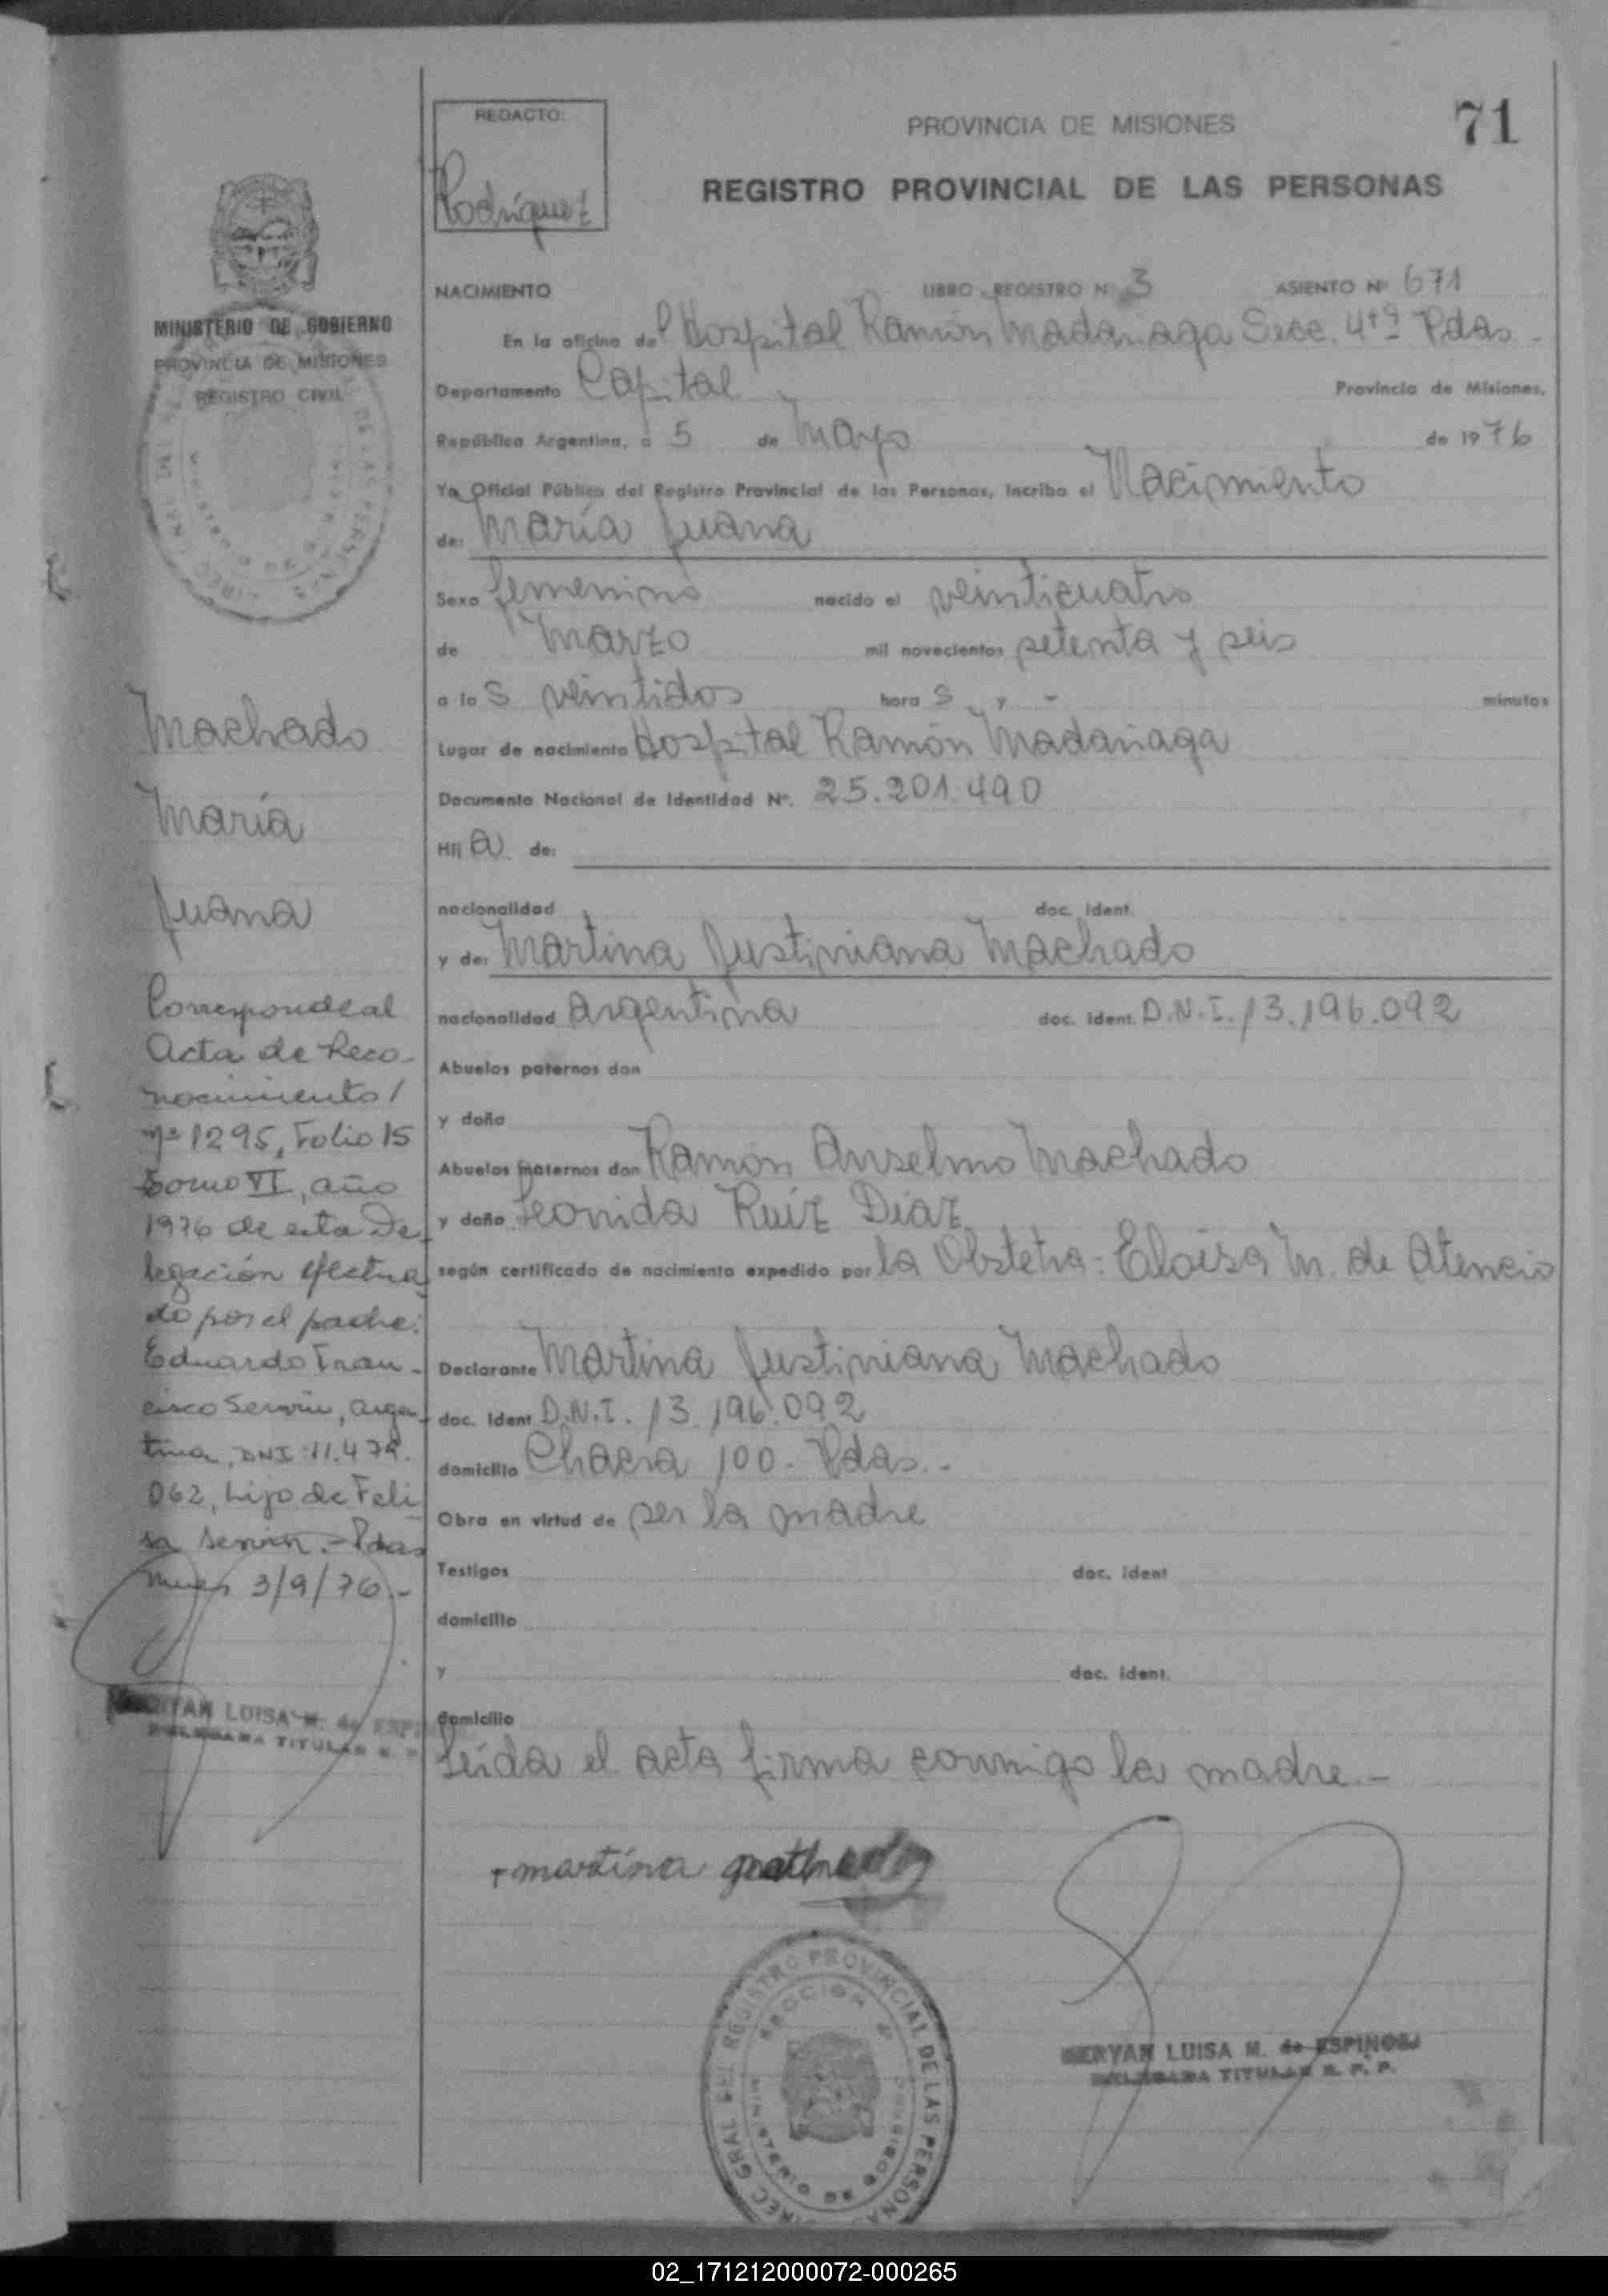 REDACTO:
Rodríguez
PROVINCIA DE MISIONES
71
REGISTRO PROVINCIAL DE LAS PERSONAS
NACIMIENTO LIBRO REGISTRO Nº 3 ASIENTO Nº 671
En la oficina del Hospital Ramón Madariaga Secc. 4ta Pdas -
Departamento Capital Provincia de Misiones,
República Argentina, a 5 de Mayo de 1976
Yo Oficial Público del Registro Provincial de las Personas, Incribo el Nacimiento
de: María Juana
Sexo femenino nacido el veinticuatro
de Marzo mil novecientos setenta y seis
a las veintidos horas y - minutos
Lugar de nacimiento Hospital Ramón Madariaga
Documento Nacional de Identidad Nº. 25.201.490
Hija de:
nacionalidad doc. ident.
y de: Martina Justiniana Machado
nacionalidad Argentina doc. ident. D.N.I. 13.196.092
Abuelos paternos don
y doña
Abuelos maternos don Ramón Anselmo Machado
y doña Leonida Ruíz Díaz
según certificado de nacimiento expedido por la Obstetra: Eloisa M. de Atencio
Declarante Martina Justiniana Machado
doc. Ident D.N.I. 13.196.092
domicilio Chacra 100 - Pdas. -
Obra en virtud de ser la madre
Testigos doc. ident
domicilio
y doc. ident.
domicilio
Leída el acta firma conmigo la madre. -
martina
MERYAN LUISA M. de ESPINOSA
DELEGADA TITULAR R. P. P.
DIREC GRAL DEL REGISTRO PROVINCIAL DE LAS PERSONAS
SECCION 4ª
MINISTERIO DE GOBIERNO
MINISTERIO DE GOBIERNO
PROVINCIA DE MISIONES
REGISTRO CIVIL
Machado
María
Juana
Corresponde al
Acta de Reco-
nocimiento /
nº 1295, Folio 15
Tomo VI, año
1976 de esta De-
legación efectua-
do por el padre:
Eduardo Fran-
cisco Servin, argen-
tino, DNI: 11.479.
062, hijo de Feli-
sa Servin. - Pdas
Mnes 3/9/76. -
MERYAN LUISA M. de ESPI
DELEGADA TITULAR R. P.
02_171212000072-000265